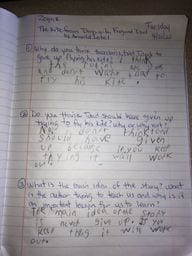 The Kite from Days with Frog and Toad
by Arnold Lobel
Tuesday
① Why do you think the robins told Toad to
give up flying his kite? I think
and don't want Toad to
fly his kite.
② Do you think Toad should have given up
trying to fly his kite? Why or why not?
I don't think Toad
should have given
up because if you keep
trying it will work
out.
③ What is the main idea of the story? What
is the author trying to teach us and why is it
an important lesson for us to learn?
The main idea of the story
never give up if you
keep trying it will work
out.